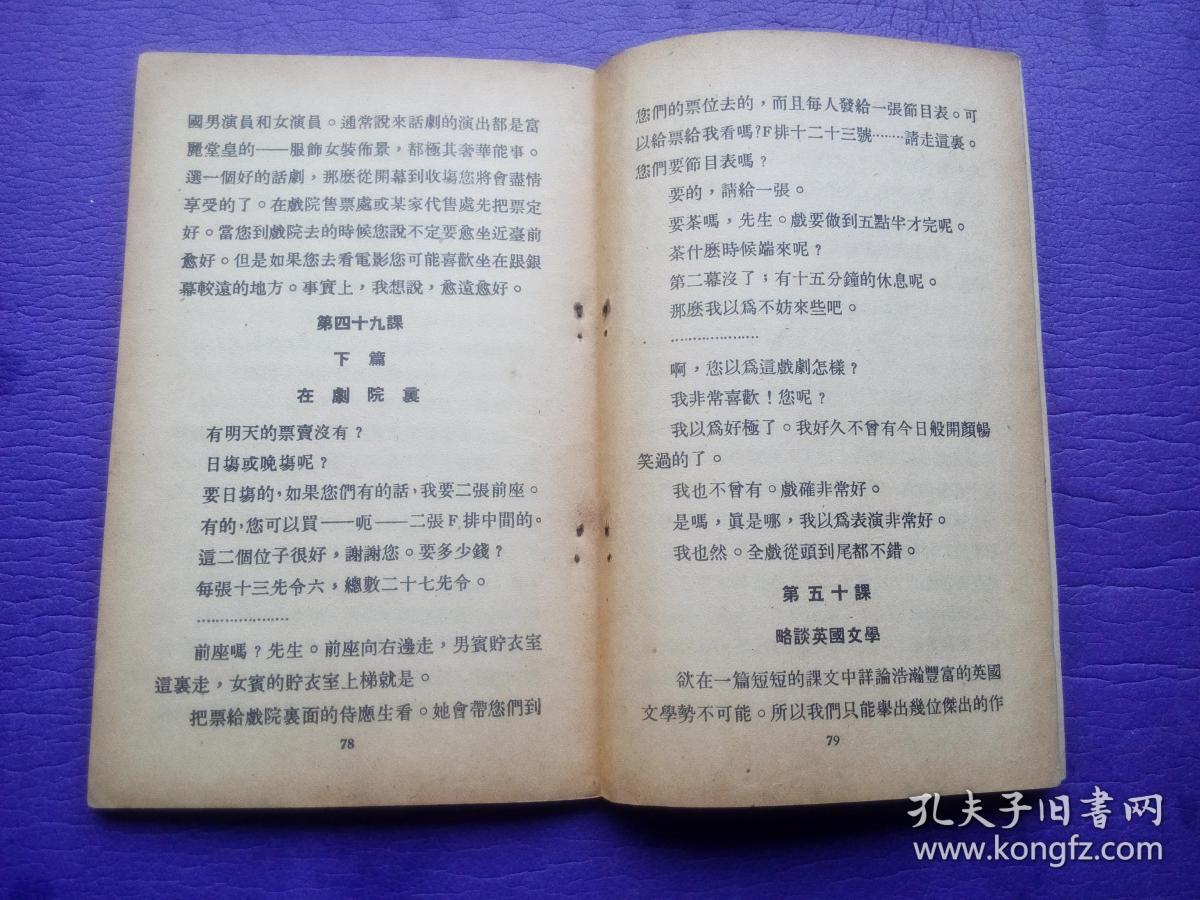 國男演員和女演員。通常說來話劇的演出都是富
麗堂皇的——服飾女裝佈景，都極其奢華能事。
選一個好的話劇，那麽從開幕到收塲您將會盡情
享受的了。在戲院售票處或某家代售處先把票定
好。當您到戲院去的時候您說不定要愈坐近臺前
愈好。但是如果您去看電影您可能喜歡坐在跟銀
幕較遠的地方。事實上，我想說，愈遠愈好。
第四十九課
下篇
在劇院裏
有明天的票賣沒有？
日塲或晚塲呢？
要日塲的，如果您們有的話，我要二張前座。
有的，您可以買——呃——二張F排中間的。
這二個位子很好，謝謝您。要多少錢？
每張十三先令六，總數二十七先令。
…………………
前座嗎？先生。前座向右邊走，男賓貯衣室
這裏走，女賓的貯衣室上梯就是。
把票給戲院裏面的侍應生看。她會帶您們到
78
您們的票位去的，而且每人發給一張節目表。可
以給票給我看嗎？F排十二十三號………請走這裏。
您們要節目表嗎？
要的，請給一張。
要茶嗎，先生。戲要做到五點半才完呢。
茶什麽時候端來呢？
第二幕沒了；有十五分鐘的休息呢。
那麽我以爲不妨來些吧。
…………………
啊，您以爲這戲劇怎樣？
我非常喜歡！您呢？
我以爲好極了。我好久不曾有今日般開顏暢
笑過的了。
我也不曾有。戲確非常好。
是嗎，眞是哪，我以爲表演非常好。
我也然。全戲從頭到尾都不錯。
第五十課
略談英國文學
欲在一篇短短的課文中詳論浩瀚豐富的英國
文學勢不可能。所以我們只能舉出幾位傑出的作
79
孔夫子旧书网
www.kongfz.com